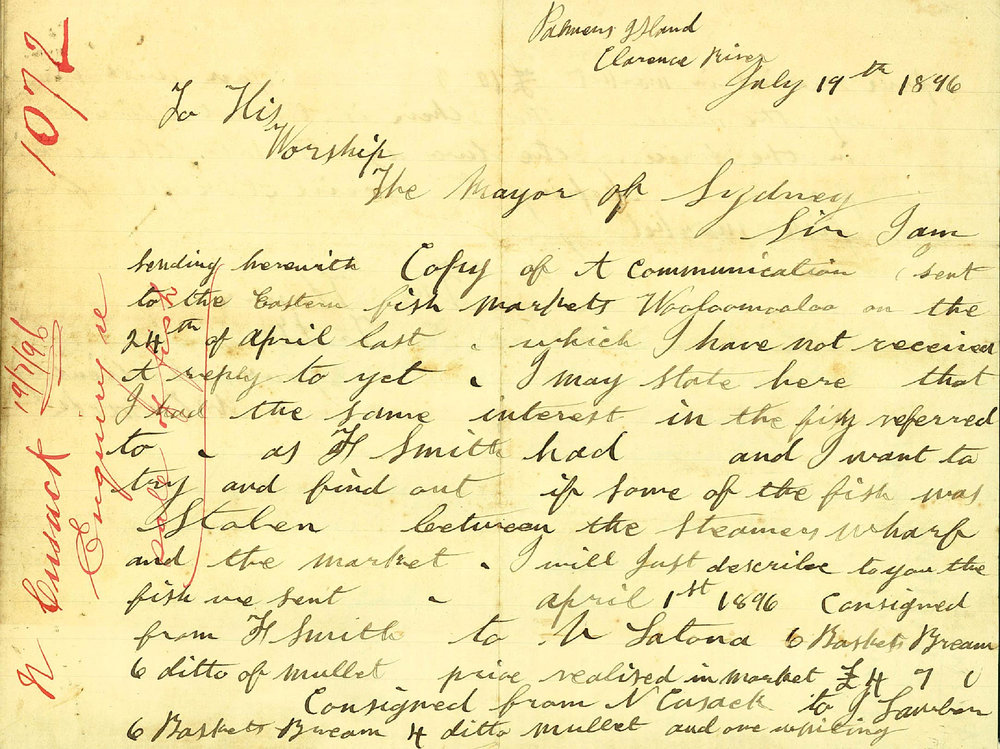 Palmers Island
Clarence River
July 19th 1896
To His
Worship
The Mayor of Sydney
Sir I am
sending herewith Copy of A Communication (sent
to the Eastern fish Markets Wooloomooloo on the
24th of April last which I have not received
A reply to yet I may state here that
I had the same interest in the fish referred
to as H Smith had and I want to
try and find out if some of the fish was
Stolen between the Steamers Wharf
and the market I will Just describe to you the
fish we sent April 1st 1896 Consigned
from H Smith to Latona 6 Baskets Bream
6 ditto of mullet price realised in market £4 7 0
Consigned from N Cusack to J
6 Baskets Bream 4 ditto mullet and one whiting
1072
N Cusack 19/7/96
Enquiry re
sale of fish